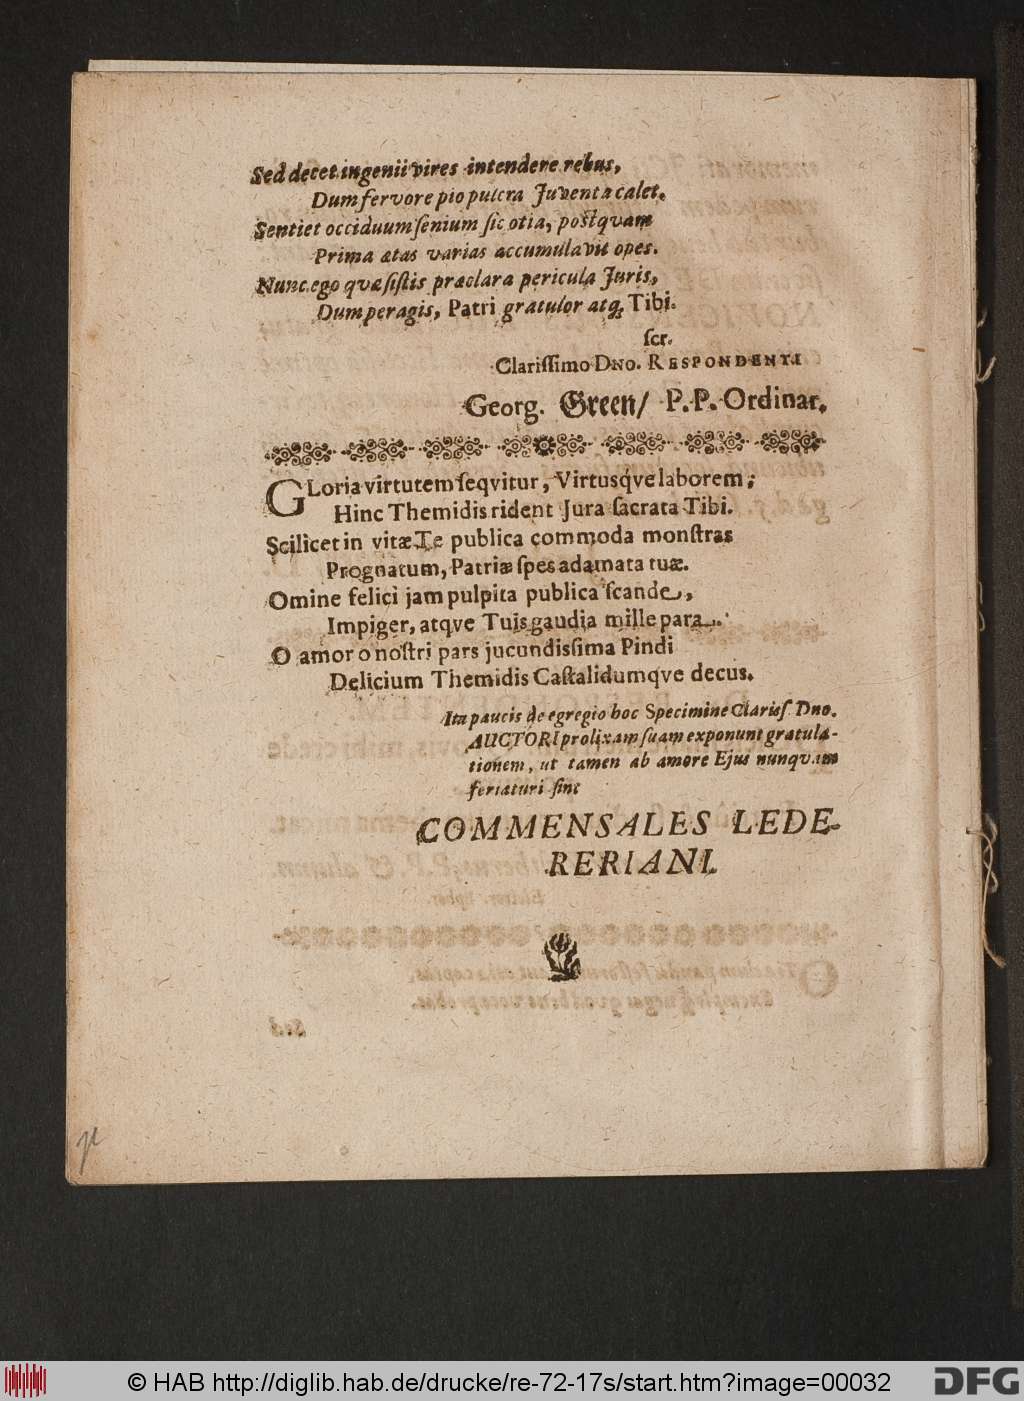 Sed decet ingenii vires intendere rebus,
Dum fervore pio pulcra Juventa calet.
Sentiet occiduum ſenium ſic otia, poſtqvam
Prima ætas varias accumulavit opes.
Nunc ego qvæ ſiſtis præclara pericula Juris,
Dum peragis, Patri gratulor atq; Tibi.
ſcr.
Clariſſimo Dno. RESPONDENTI
Georg. Green/ P. P. Ordinar.
GLoria virtutem ſeqvitur, Virtusq́ve laborem;
Hinc Themidis rident Jura ſacrata Tibi.
Scilicet in vitæ Te publica commoda monſtras
Prognatum, Patriæ ſpes adamata tuæ.
Omine felici jam pulpita publica ſcande,
Impiger, atqve Tuis gaudia mille para.
O amor o noſtri pars jucundisſima Pindi
Delicium Themidis Caſtalidumqve decus.
Ita paucis de egregio hoc Specimine Clariſſ. Dno.
AUCTORI prolixam ſuam exponunt gratula-
tionem, ut tamen ab amore Ejus nunqvam
feriaturi ſint
COMMENSALES LEDE-
RERIANI.
© HAB http://diglib.hab.de/drucke/re-72-17s/start.htm?image=00032
DFG